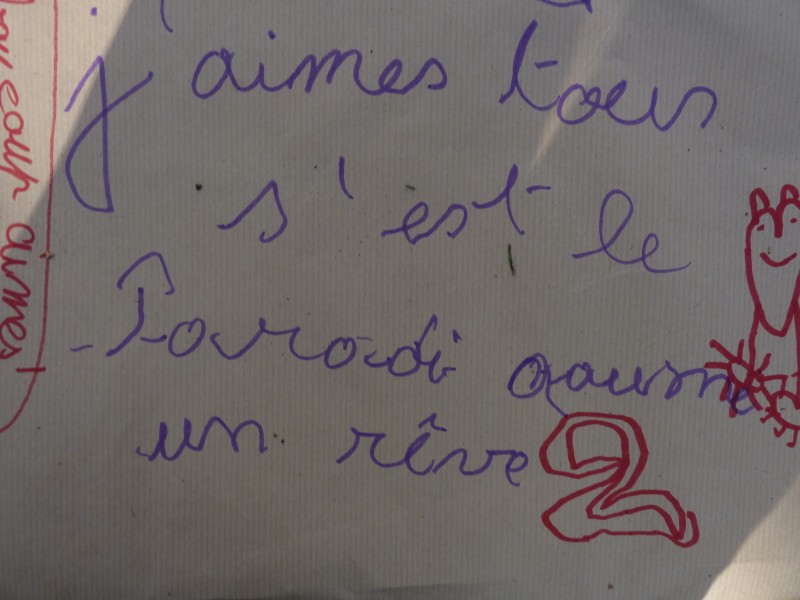 j'aimes tous
s'est le
Paradi
un rêve
2
aimes